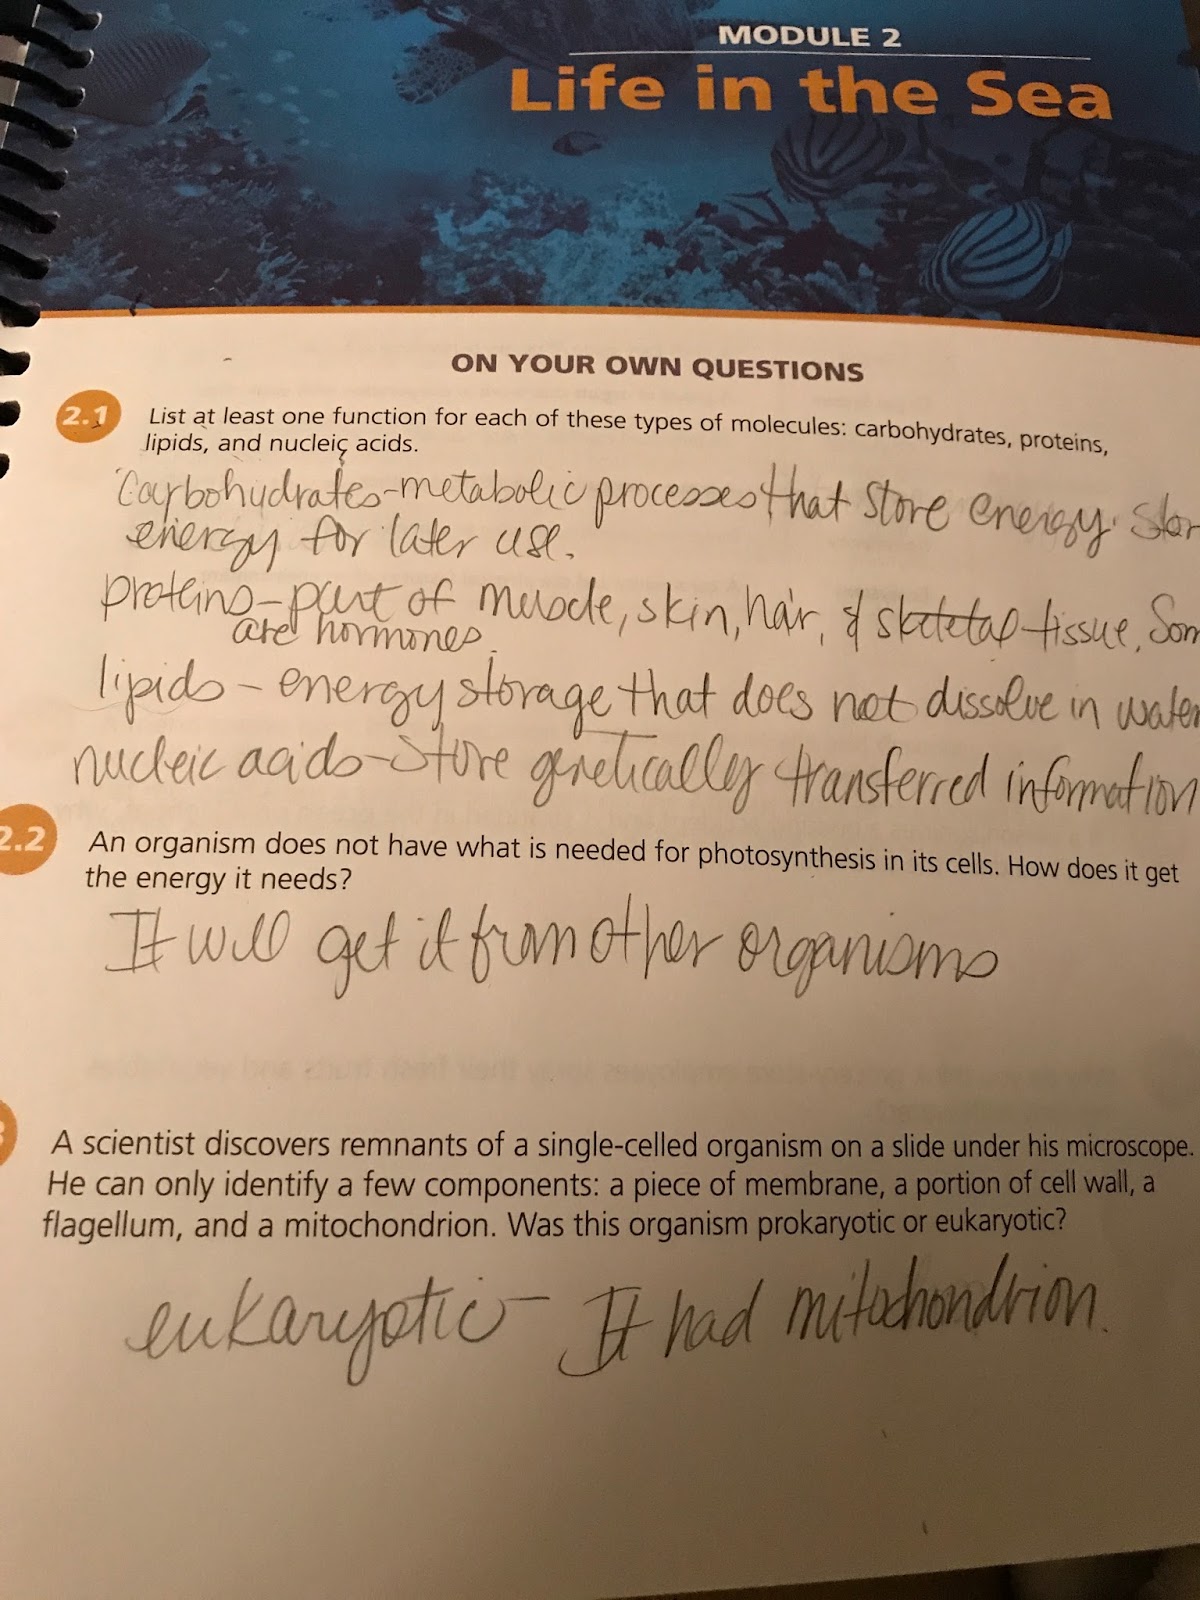 MODULE 2
Life in the Sea
ON YOUR OWN QUESTIONS
2.1 List at least one function for each of these types of molecules: carbohydrates, proteins,
lipids, and nucleic acids.
Carbohydrates-metabolic processes that store energy. Stor
energy for later use.
proteins-part of muscle, skin, hair, & skeletal tissue, Som
are hormones.
lipids - energy storage that does not dissolve in water
nucleic acids-store genetically transferred information
2.2 An organism does not have what is needed for photosynthesis in its cells. How does it get
the energy it needs?
It will get it from other organisms
3 A scientist discovers remnants of a single-celled organism on a slide under his microscope.
He can only identify a few components: a piece of membrane, a portion of cell wall, a
flagellum, and a mitochondrion. Was this organism prokaryotic or eukaryotic?
eukaryotic- It had mitochondrion.